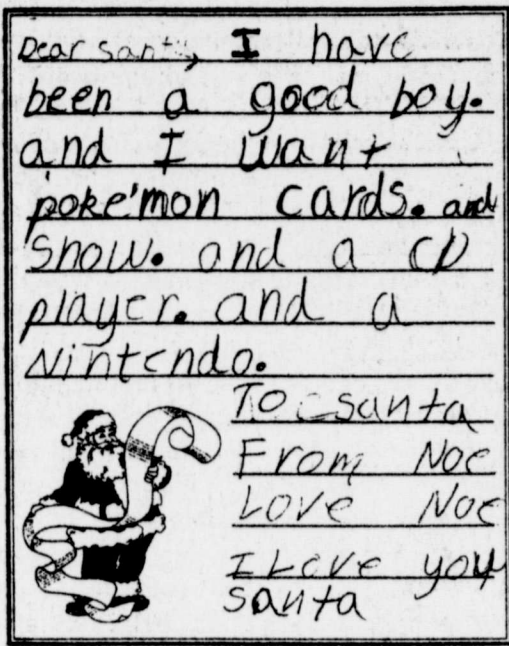 Dear santa, I have
been a good boy.
and I want
poke'mon cards. and
snow. and a CD
player. and a
Nintendo.
To santa
From Noe
Love Noe
I Love you
santa